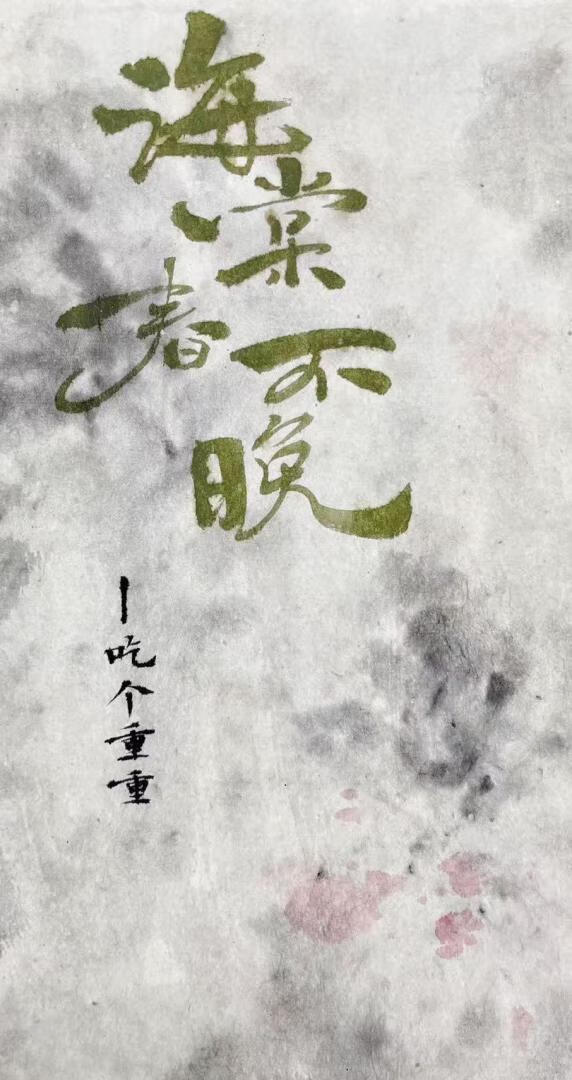 海棠
春不晚
—吃个重重